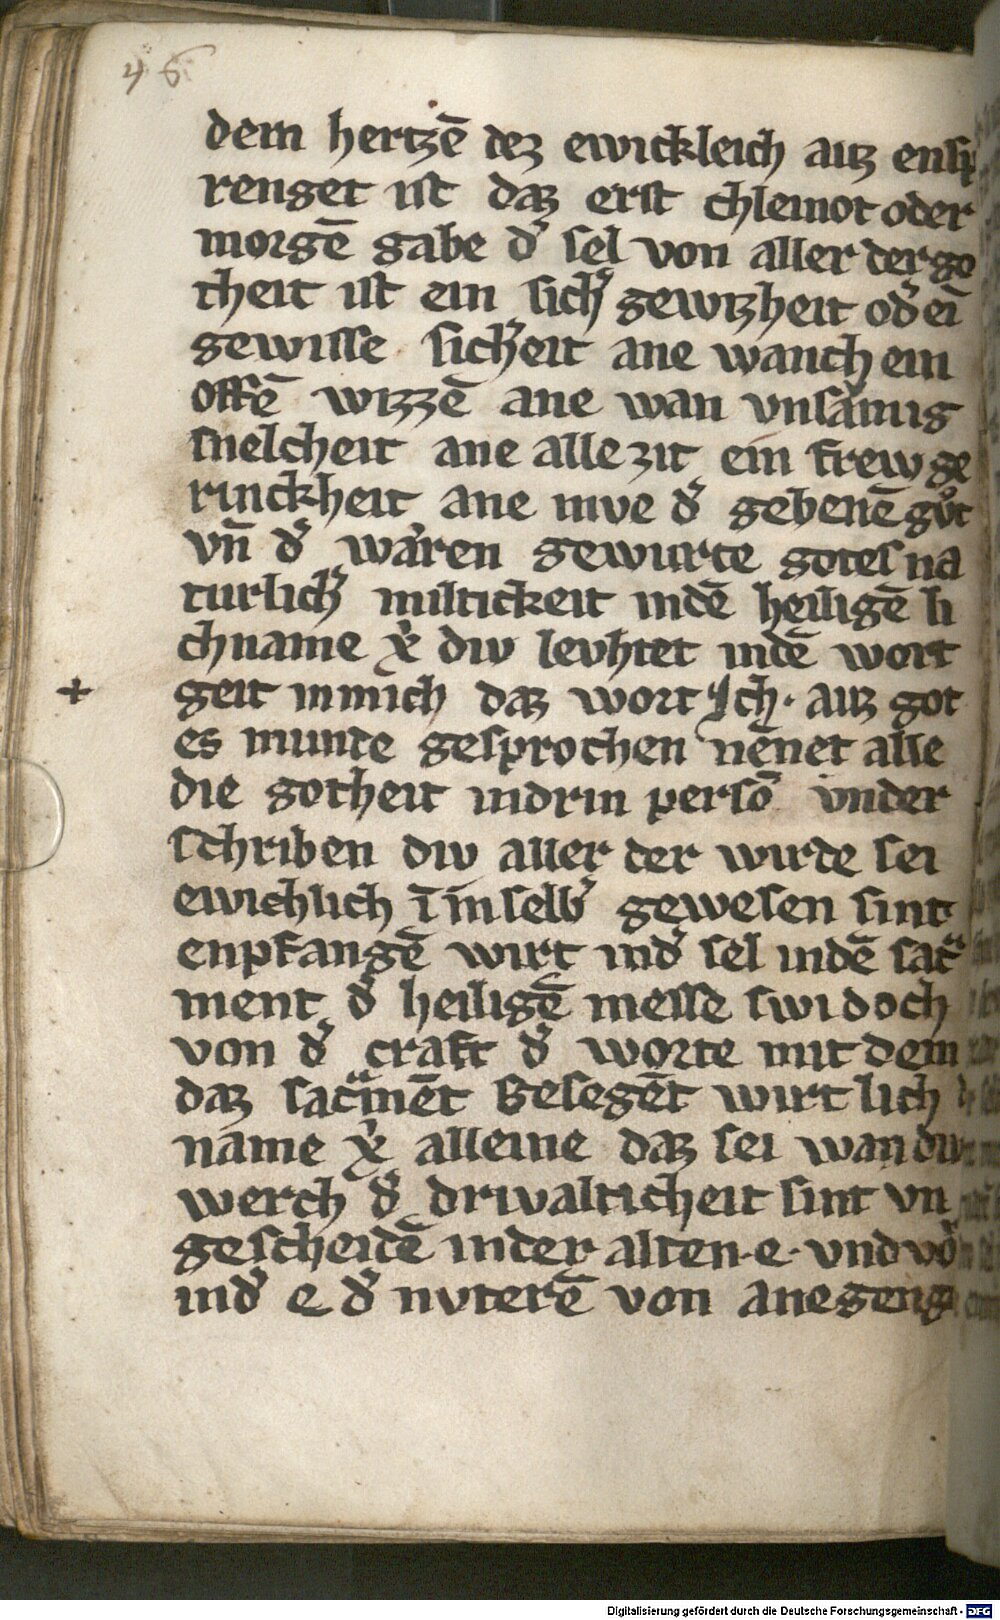 46
dem hertzē dez ewickleich auz ensp
renget ist daz erst chleinot oder
morgē gabe d᾽ sel von aller der go
theit ist ein sich᾽ gewizheit od᾽ eī
gewisse sich᾽eit ane wanch ein
offē wizzē ane wan vnsamig
snelcheit ane alle zit ein frew ge
rinckheit ane mve d᾽ gebenē gůt
vn̄ d᾽ waren gewurte gotes na
turlich᾽ miltickeit indē heiligē li
chname xᷓ div levhtet indē wort
+ geit in mich daz wort Ich · auz got
es munde gesprochen nēnet alle
die gotheit indrin persō vnder
schriben div aller der wirde sei
ewichlich ī in selb᾽ gewesen sint
enpfangē wirt ind᾽ sel indē sacᷓ
ment d᾽ heiligē messe swi doch
von d᾽ craft d᾽ worte mit dem
daz sacᷓmēt Gesegēt wirt lich
name xᷓ alleine daz sei wan div
werch d᾽ drivalticheit sint vn
gescheidē inder alten · e · vnd vō
ind᾽ e d᾽ nvterē von anegeng
Digitalisierung gefördert durch die Deutsche Forschungsgemeinschaft - DFG